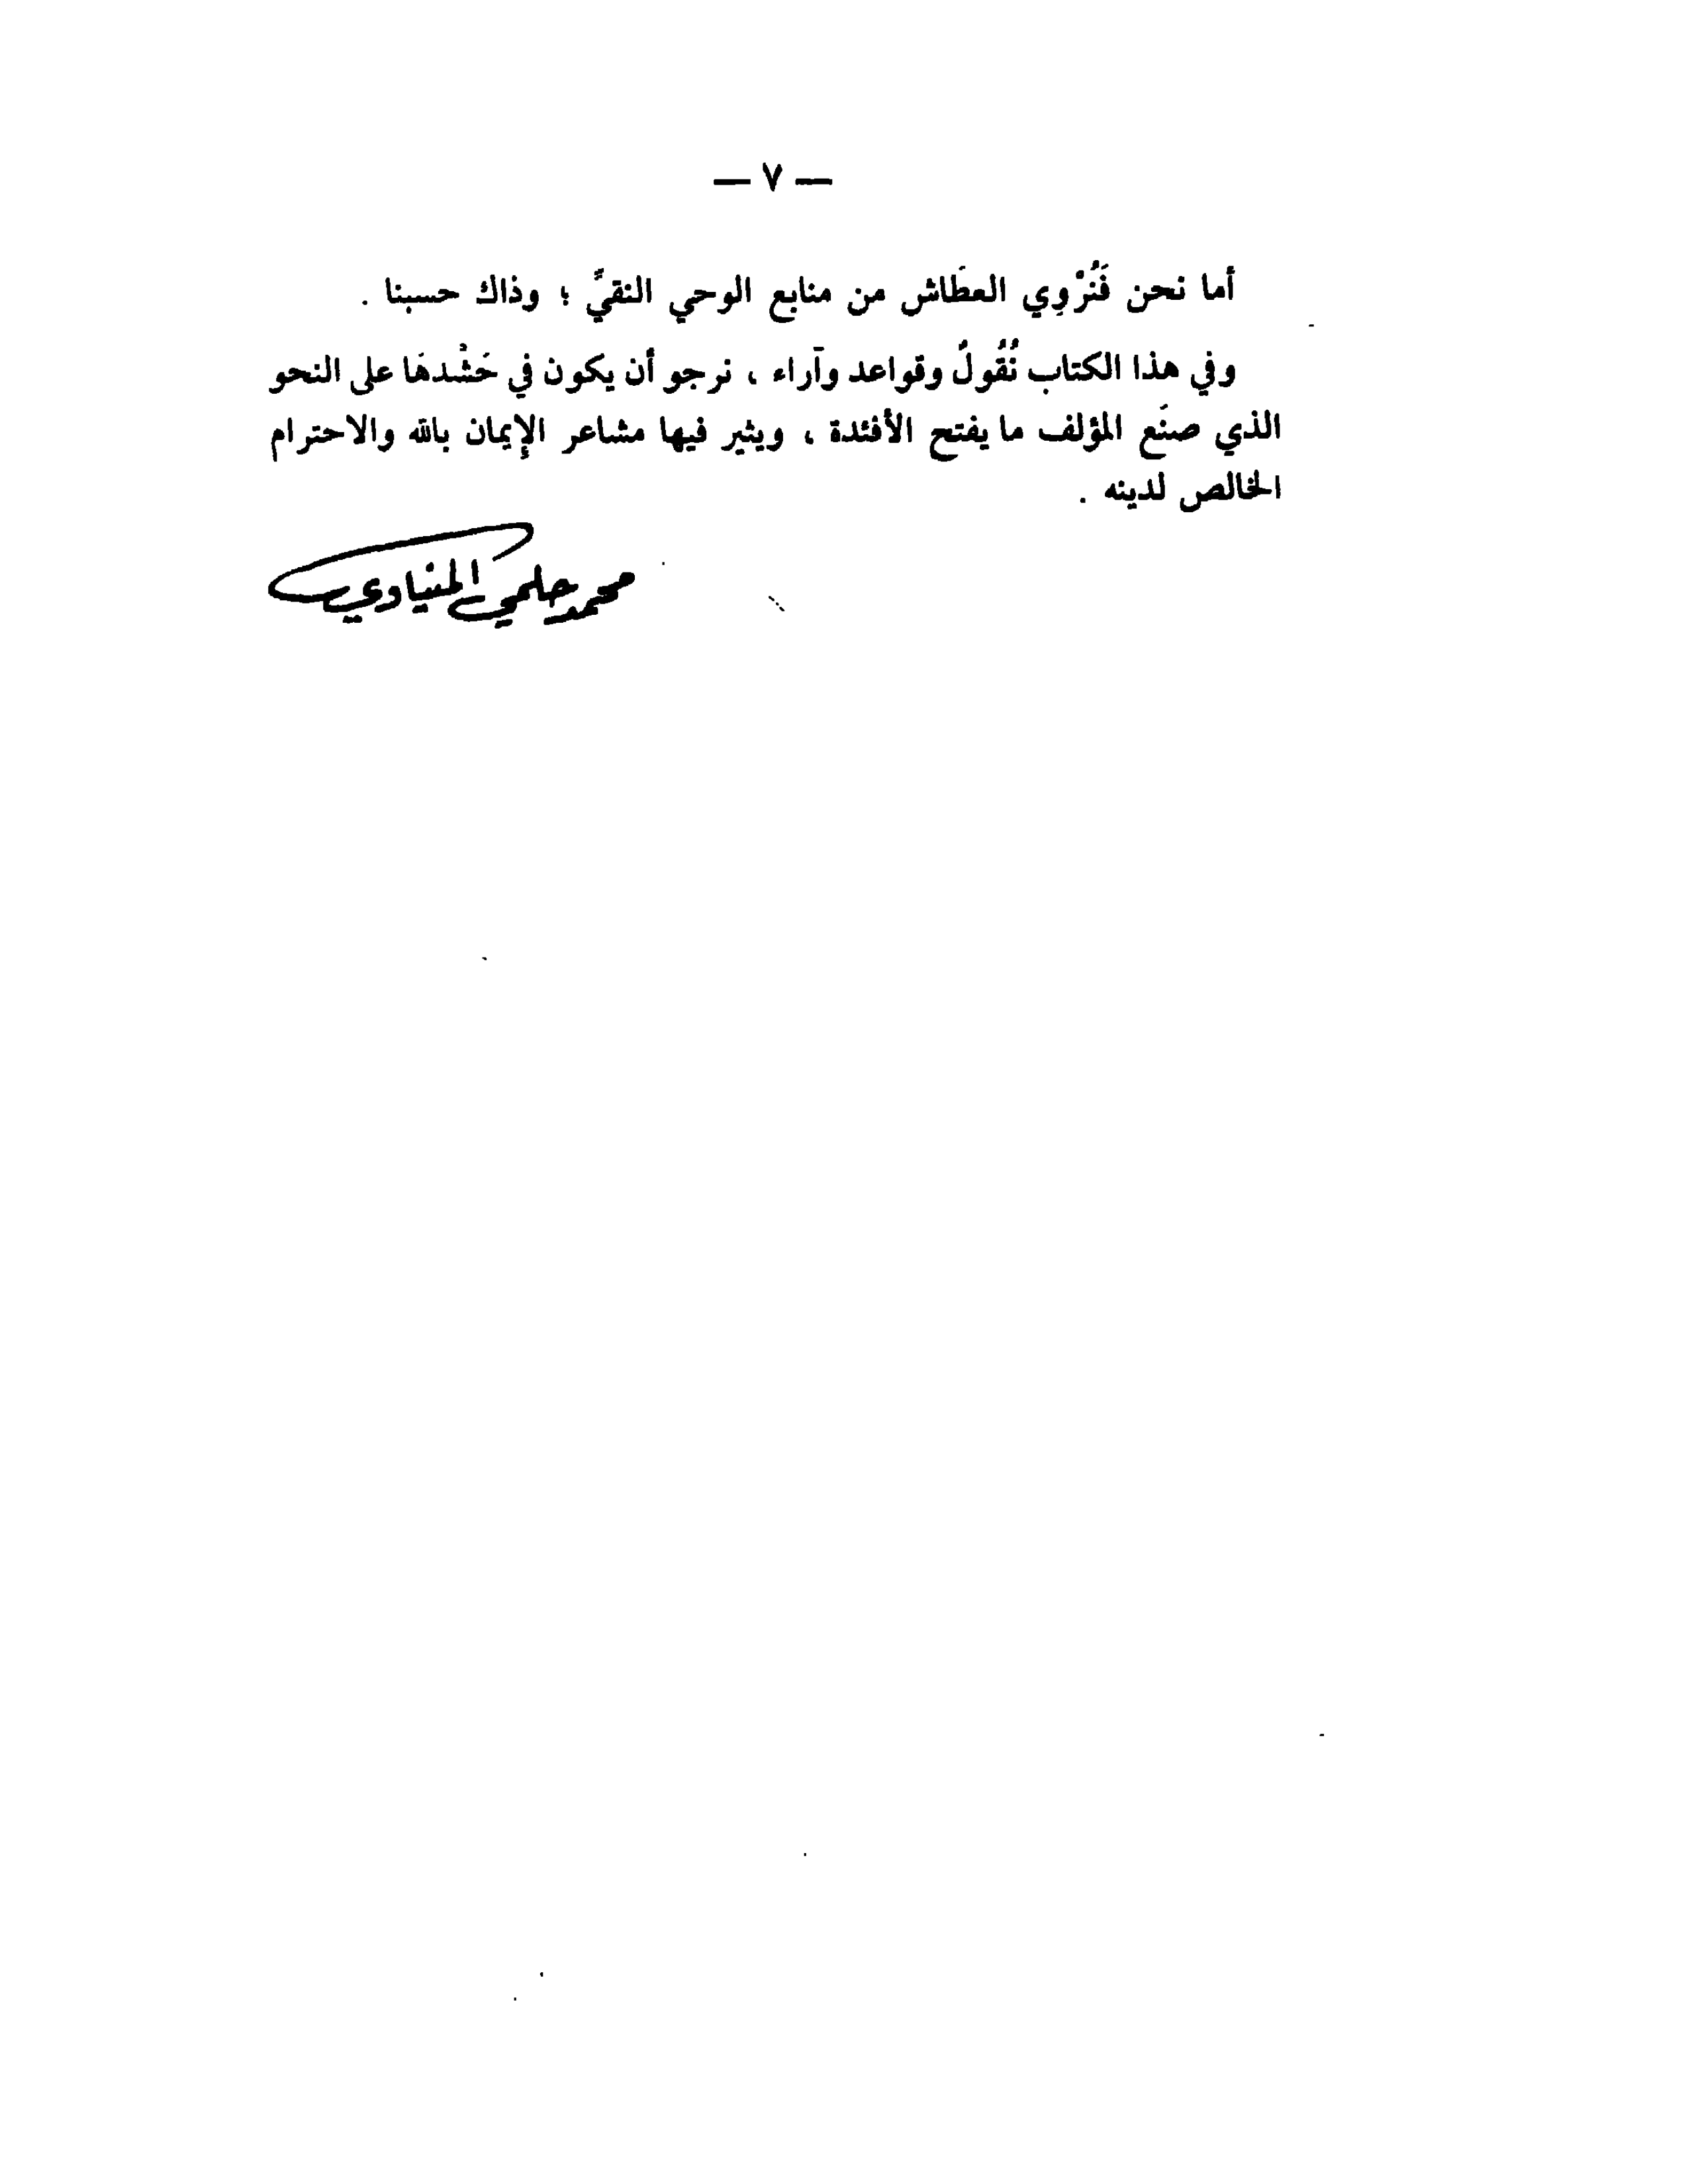 — ٧ —
أما نحن فَنُرْوِي العطَاش من منابع الوحي النقيِّ ؛ وذاك حسبنا .
وفي هذا الكتاب نُقُولٌ وقواعد وآراء ، نرجو أن يكون في حَشْدهَا على النحو
الذي صنَع المؤلف ما يفتح الأفئدة ، ويثير فيها مشاعر الإيمان بالله والاحترام
الخالص لدينه .
محمد حلمي المنياوي